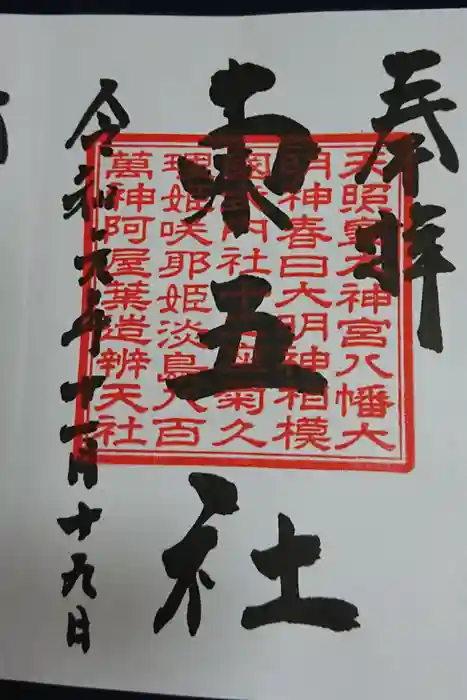 奉拝
東五社
令和元年十一月十九日
天照皇大神宮八幡大
明神春日大明神相模
國
社十
菊久
理姫咲耶姫淡島八百
萬神阿屋葉造辨天社